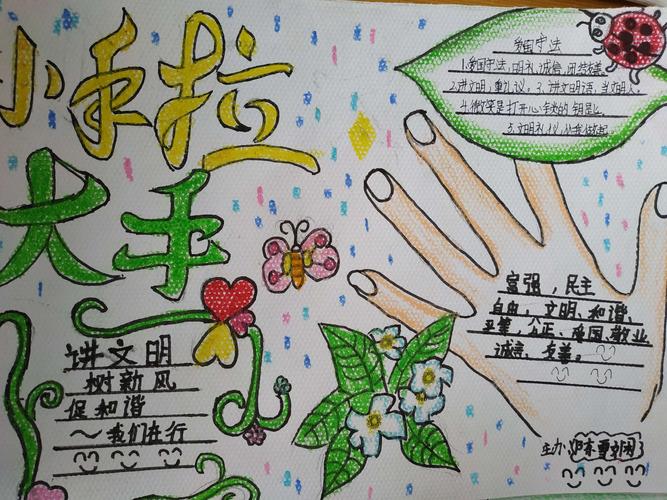 小手拉
大手
爱国守法
1.爱国守法,明礼诚信,团结友善
2.讲文明,重礼议,3.讲文明语,当文明人
4.微笑是打开心锁的钥匙
5.文明礼仪,从我做起
富强,民主
自由,文明、和谐、
平等,公正、爱国、敬业
诚信、友善。
讲文明
树新风
促和谐
~我们在行
主办: